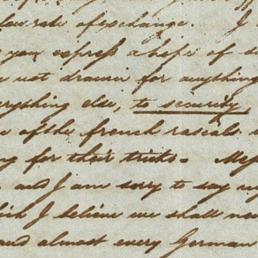 low rate of exchange. I
you express a hope of
not drawn for anything
erything else, to security
of the french rascals
ng for their tricks. Mess
and I am sorry to say
ich I believe we shall
and almost every German